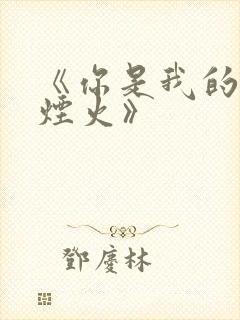 《你是我的
煙火》
鄧慶林